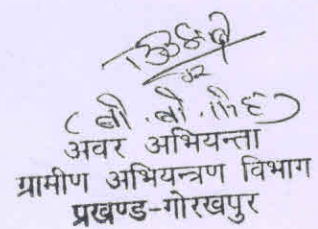 (बी.बी.सिंह)
अवर अभियन्ता
ग्रामीण अभियन्त्रण विभाग
प्रखण्ड-गोरखपुर